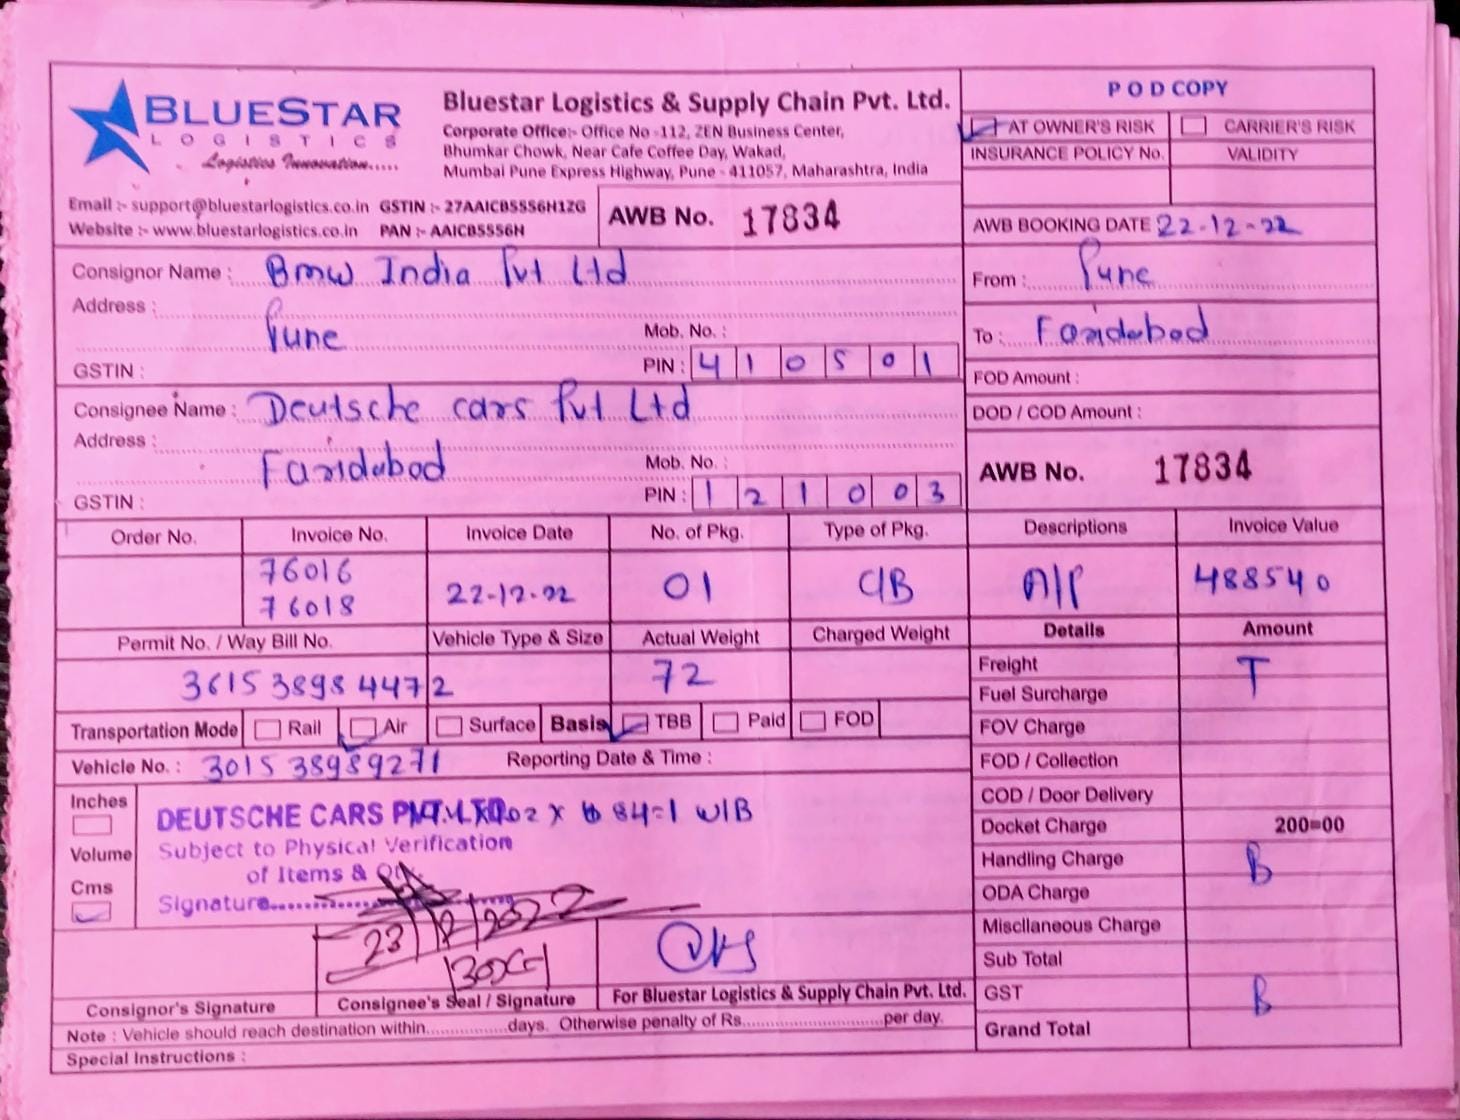 BLUESTAR
LOGISTICS
Logistics Innovation.....
Bluestar Logistics & Supply Chain Pvt. Ltd.
Corporate Office:- Office No -112, ZEN Business Center,
Bhumkar Chowk, Near Cafe Coffee Day, Wakad,
Mumbai Pune Express Highway, Pune - 411057, Maharashtra, India
Email :- support@bluestarlogistics.co.in GSTIN :- 27AAICB5556H1ZG
Website :- www.bluestarlogistics.co.in PAN :- AAICB5556H
AWB No. 17834
POD COPY
AT OWNER'S RISK CARRIER'S RISK
INSURANCE POLICY No. VALIDITY
AWB BOOKING DATE 22-12-22
Consignor Name : BMW India Pvt Ltd
Address :
Pune
Mob. No. :
GSTIN :
PIN : 410501
From : Pune
To : Faridabad
FOD Amount :
DOD / COD Amount :
Consignee Name : Deutsche cars Pvt Ltd
Address :
Faridabad
Mob. No. :
GSTIN :
PIN : 121003
AWB No. 17834
Order No. Invoice No. Invoice Date No. of Pkg. Type of Pkg. Descriptions Invoice Value
76016
76018 22-12-22 01 C/B A/P 488540
Permit No. / Way Bill No. Vehicle Type & Size Actual Weight Charged Weight Details Amount
3615 3898 4472 72
Freight T
Fuel Surcharge
Transportation Mode Rail Air Surface Basis TBB Paid FOD
FOV Charge
Vehicle No. : 3015 38989271 Reporting Date & Time :
FOD / Collection
COD / Door Delivery
Docket Charge 200=00
Handling Charge B
ODA Charge
Miscllaneous Charge
Sub Total
GST B
Grand Total
Inches
Volume
Cms
DEUTSCHE CARS PVT. LTD. 02 x 84=1 W/B
Subject to Physical Verification
of Items &
Signature..................
23/12/2022
Consignor's Signature Consignee's Seal / Signature For Bluestar Logistics & Supply Chain Pvt. Ltd.
Note : Vehicle should reach destination within................days. Otherwise penalty of Rs............................per day.
Special Instructions :